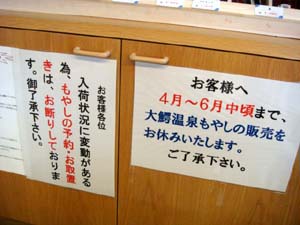 お客様各位
入荷状況に変動がある
為、もやしの予約・お取置
きは、お断りしておりま
す。御了承下さい。
お客様へ
4月～6月中頃まで、
大鰐温泉もやしの販売を
お休みいたします。
ご了承下さい。